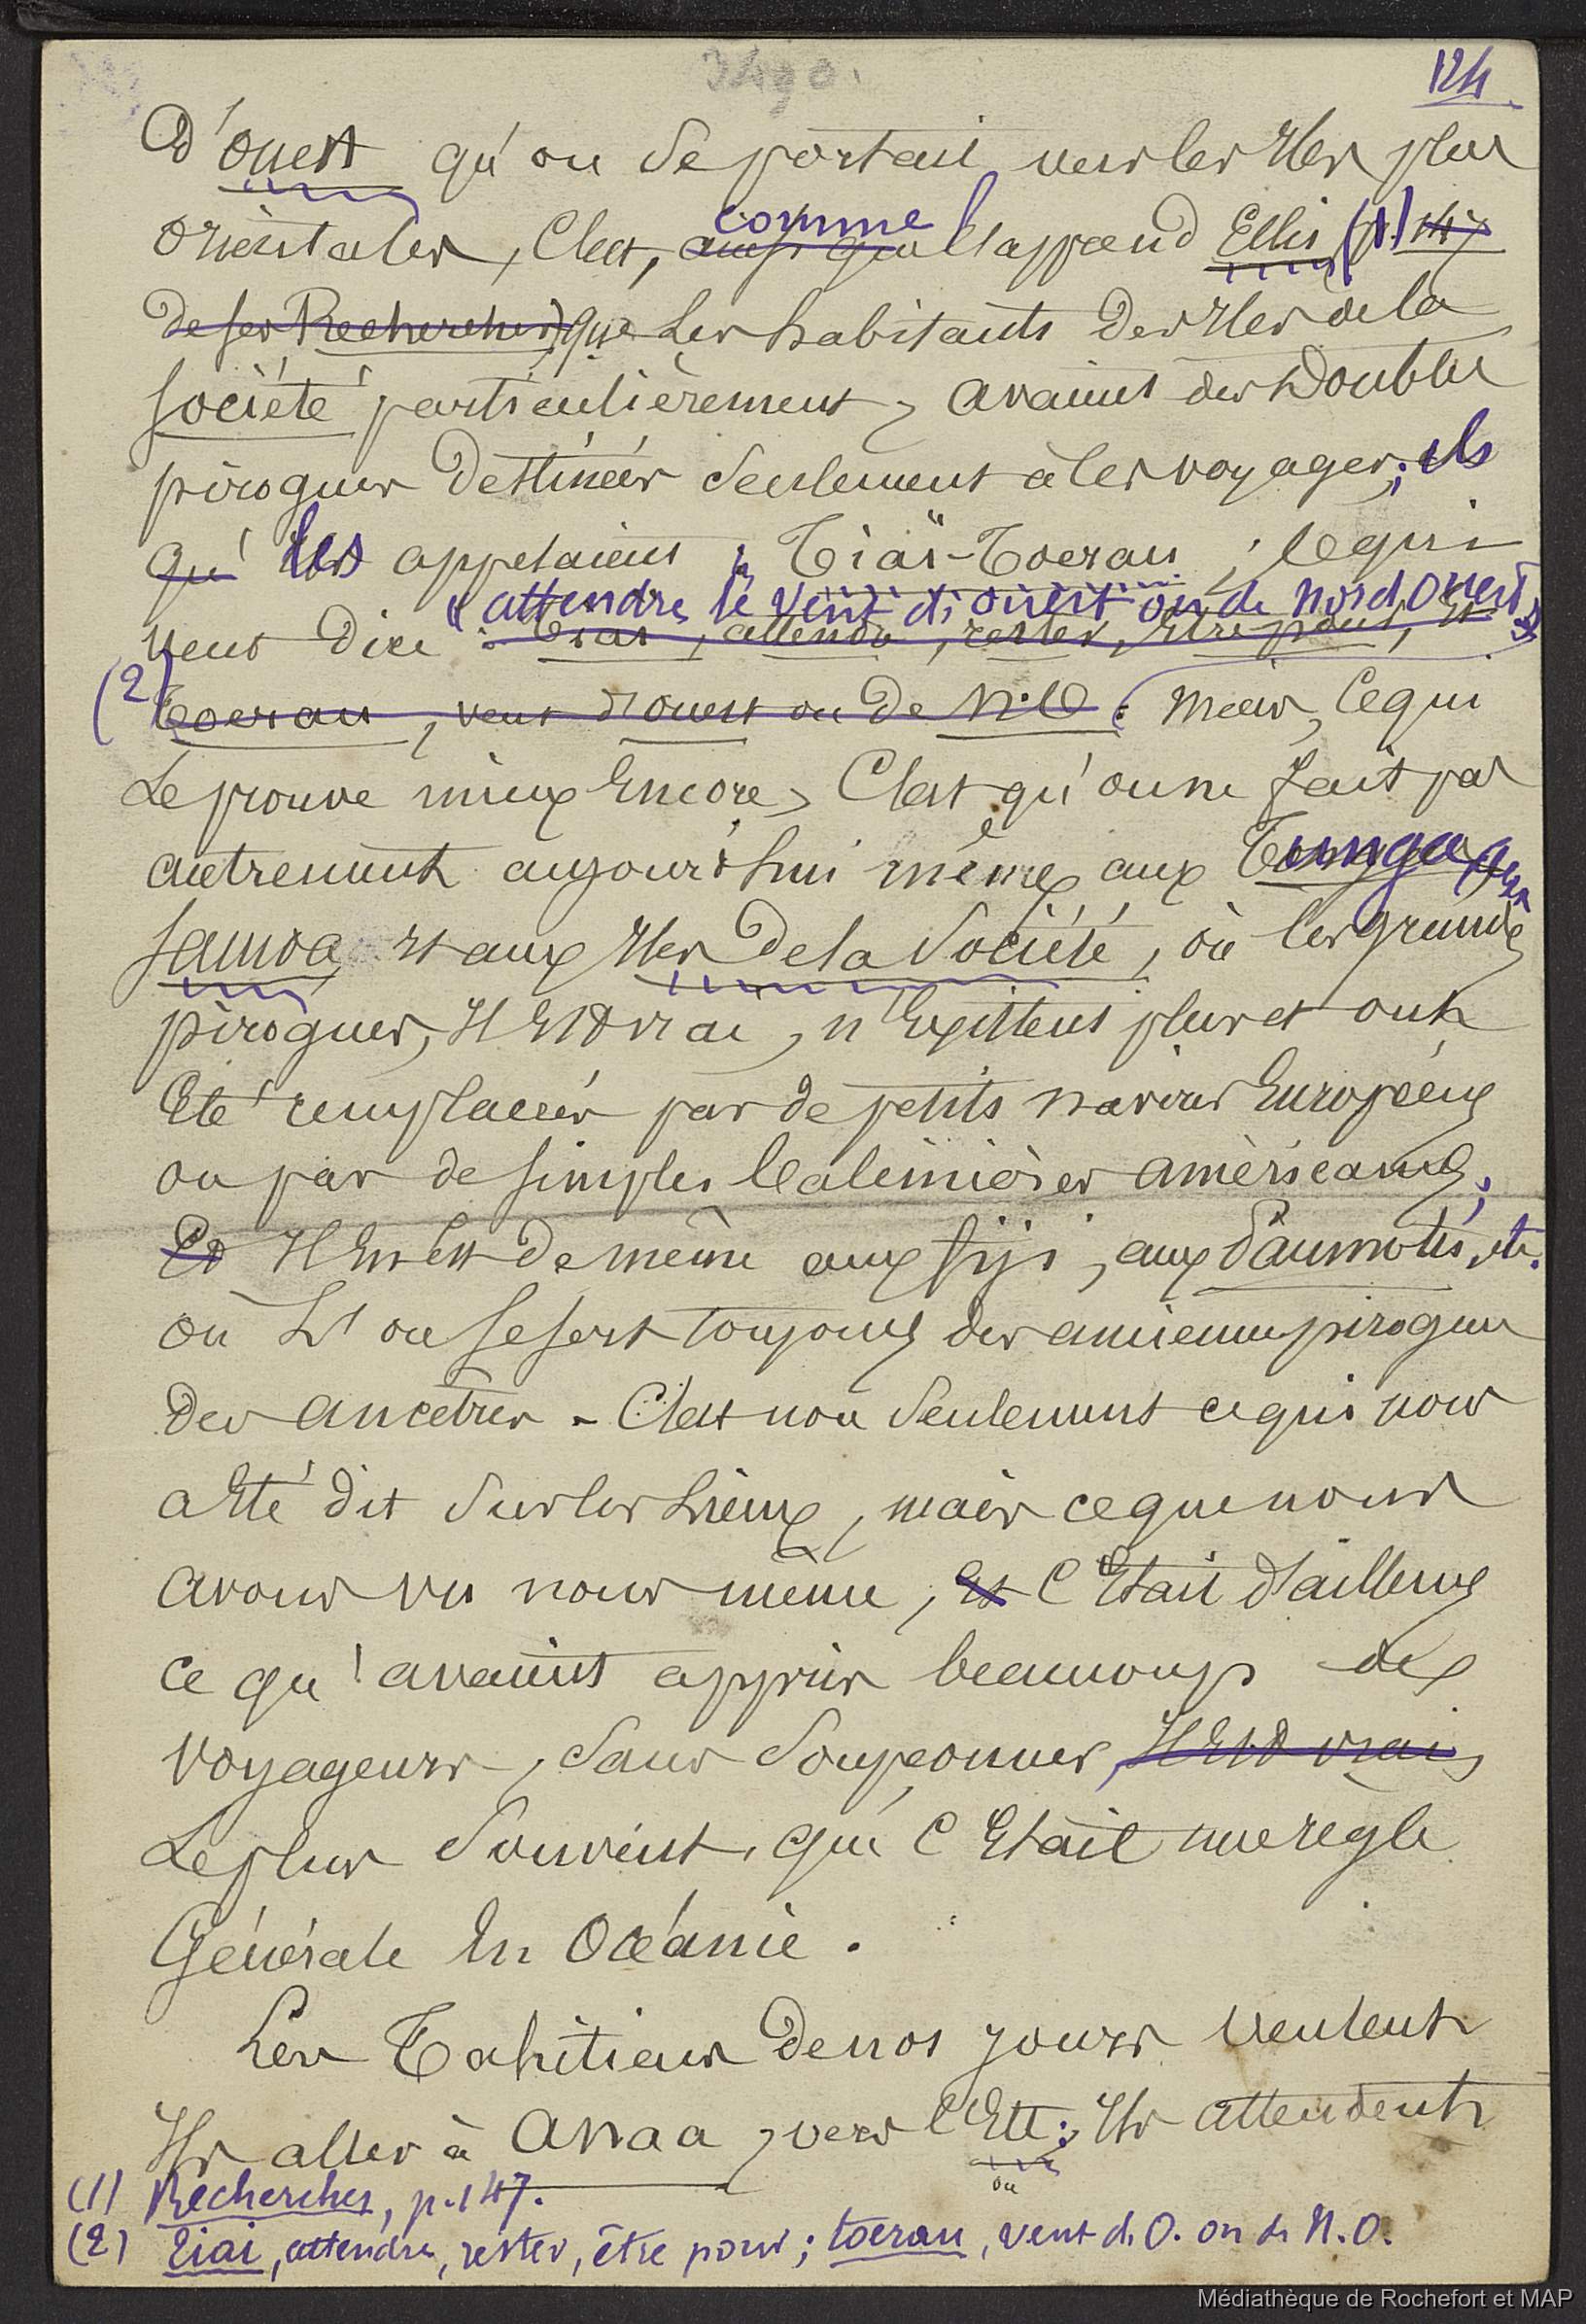 124
D'ouest qu'on se portait vers les Iles plus
orientales, C'est, ainsi que comme l'apprend Ellis (1) p. 147
de ses Recherches) que Les habitants des Iles de la
Société particulièrement, avaient des Doubles
pirogues Destinées seulement à ces voyages; ils
qu' les appelaient Tiaï-Toerau, ce qui
veut Dire : "attendre le vent d'ouest ou de Nord Ouest"
Tiai, attendre, rester, être pour, et
(2) Toerau, vent d'ouest ou de N.O. Mais, Ce qui
Le prouve mieux Encore, C'est qu'on ne fait pas
autrement aujourd'hui même aux Tunga, aux
Samoa et aux Iles De la Société, où les grandes
pirogues, Il Est vrai, n'Existent plus et ont
Eté remplacées par de petits navires Européens
ou par de simples baleinières américaines;
Et Il En est De même aux Fiji, aux Paumotu, etc.
où L'on se sert toujours des anciennes pirogues
Des ancêtres - C'est non seulement ce qui nous
a Eté dit sur les Lieux, mais ce que nous
avons vu nous même, et C'Etait d'ailleurs
ce qu'avaient appris beaucoup de
voyageurs, sans soupçonner, Il Est vrai,
Le plus souvent, qu'C'Etait une règle
Générale En Océanie.
Les Tahitiens De nos jours veulent
Ils aller à Anaa, vers l'Est; Ils attendent
ou
(1) Recherches, p. 147.
(2) Tiai, attendre, rester, être pour; toerau, vent d'O. ou de N.O.
Médiathèque de Rochefort et MAP